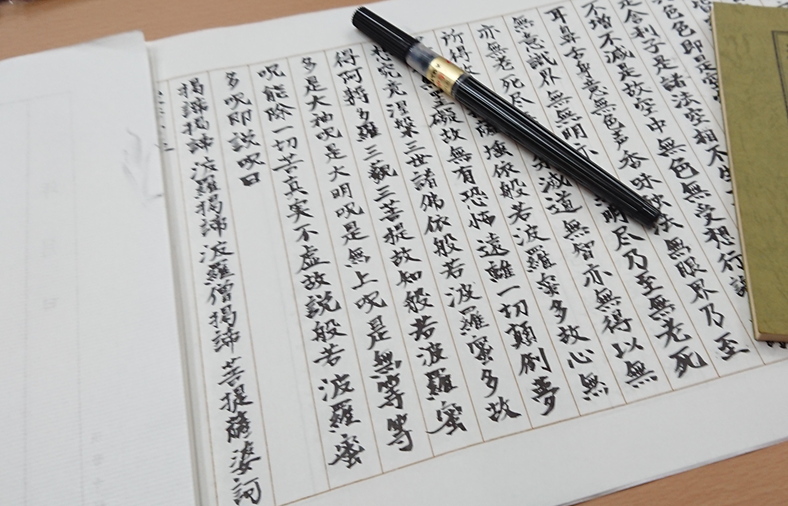 色色即是空
是舍利子是諸法空相不生
不增不減是故空中無色無受想行識
耳鼻舌身意無色声香味触法無眼界乃至
無意識界無無明亦明尽乃至無老死
亦無老死尽滅道無智亦無得以無
所得薩埵依般若波羅蜜多故心無
罣礙故無有恐怖遠離一切顛倒夢
想究竟涅槃三世諸佛依般若波羅蜜多故
得阿耨多羅三藐三菩提故知般若波羅蜜
多是大神呪是大明呪是無上呪是無等等
呪能除一切苦真実不虚故説般若波羅蜜
多呪即説呪曰
掲諦掲諦波羅掲諦波羅僧掲諦菩提薩婆訶